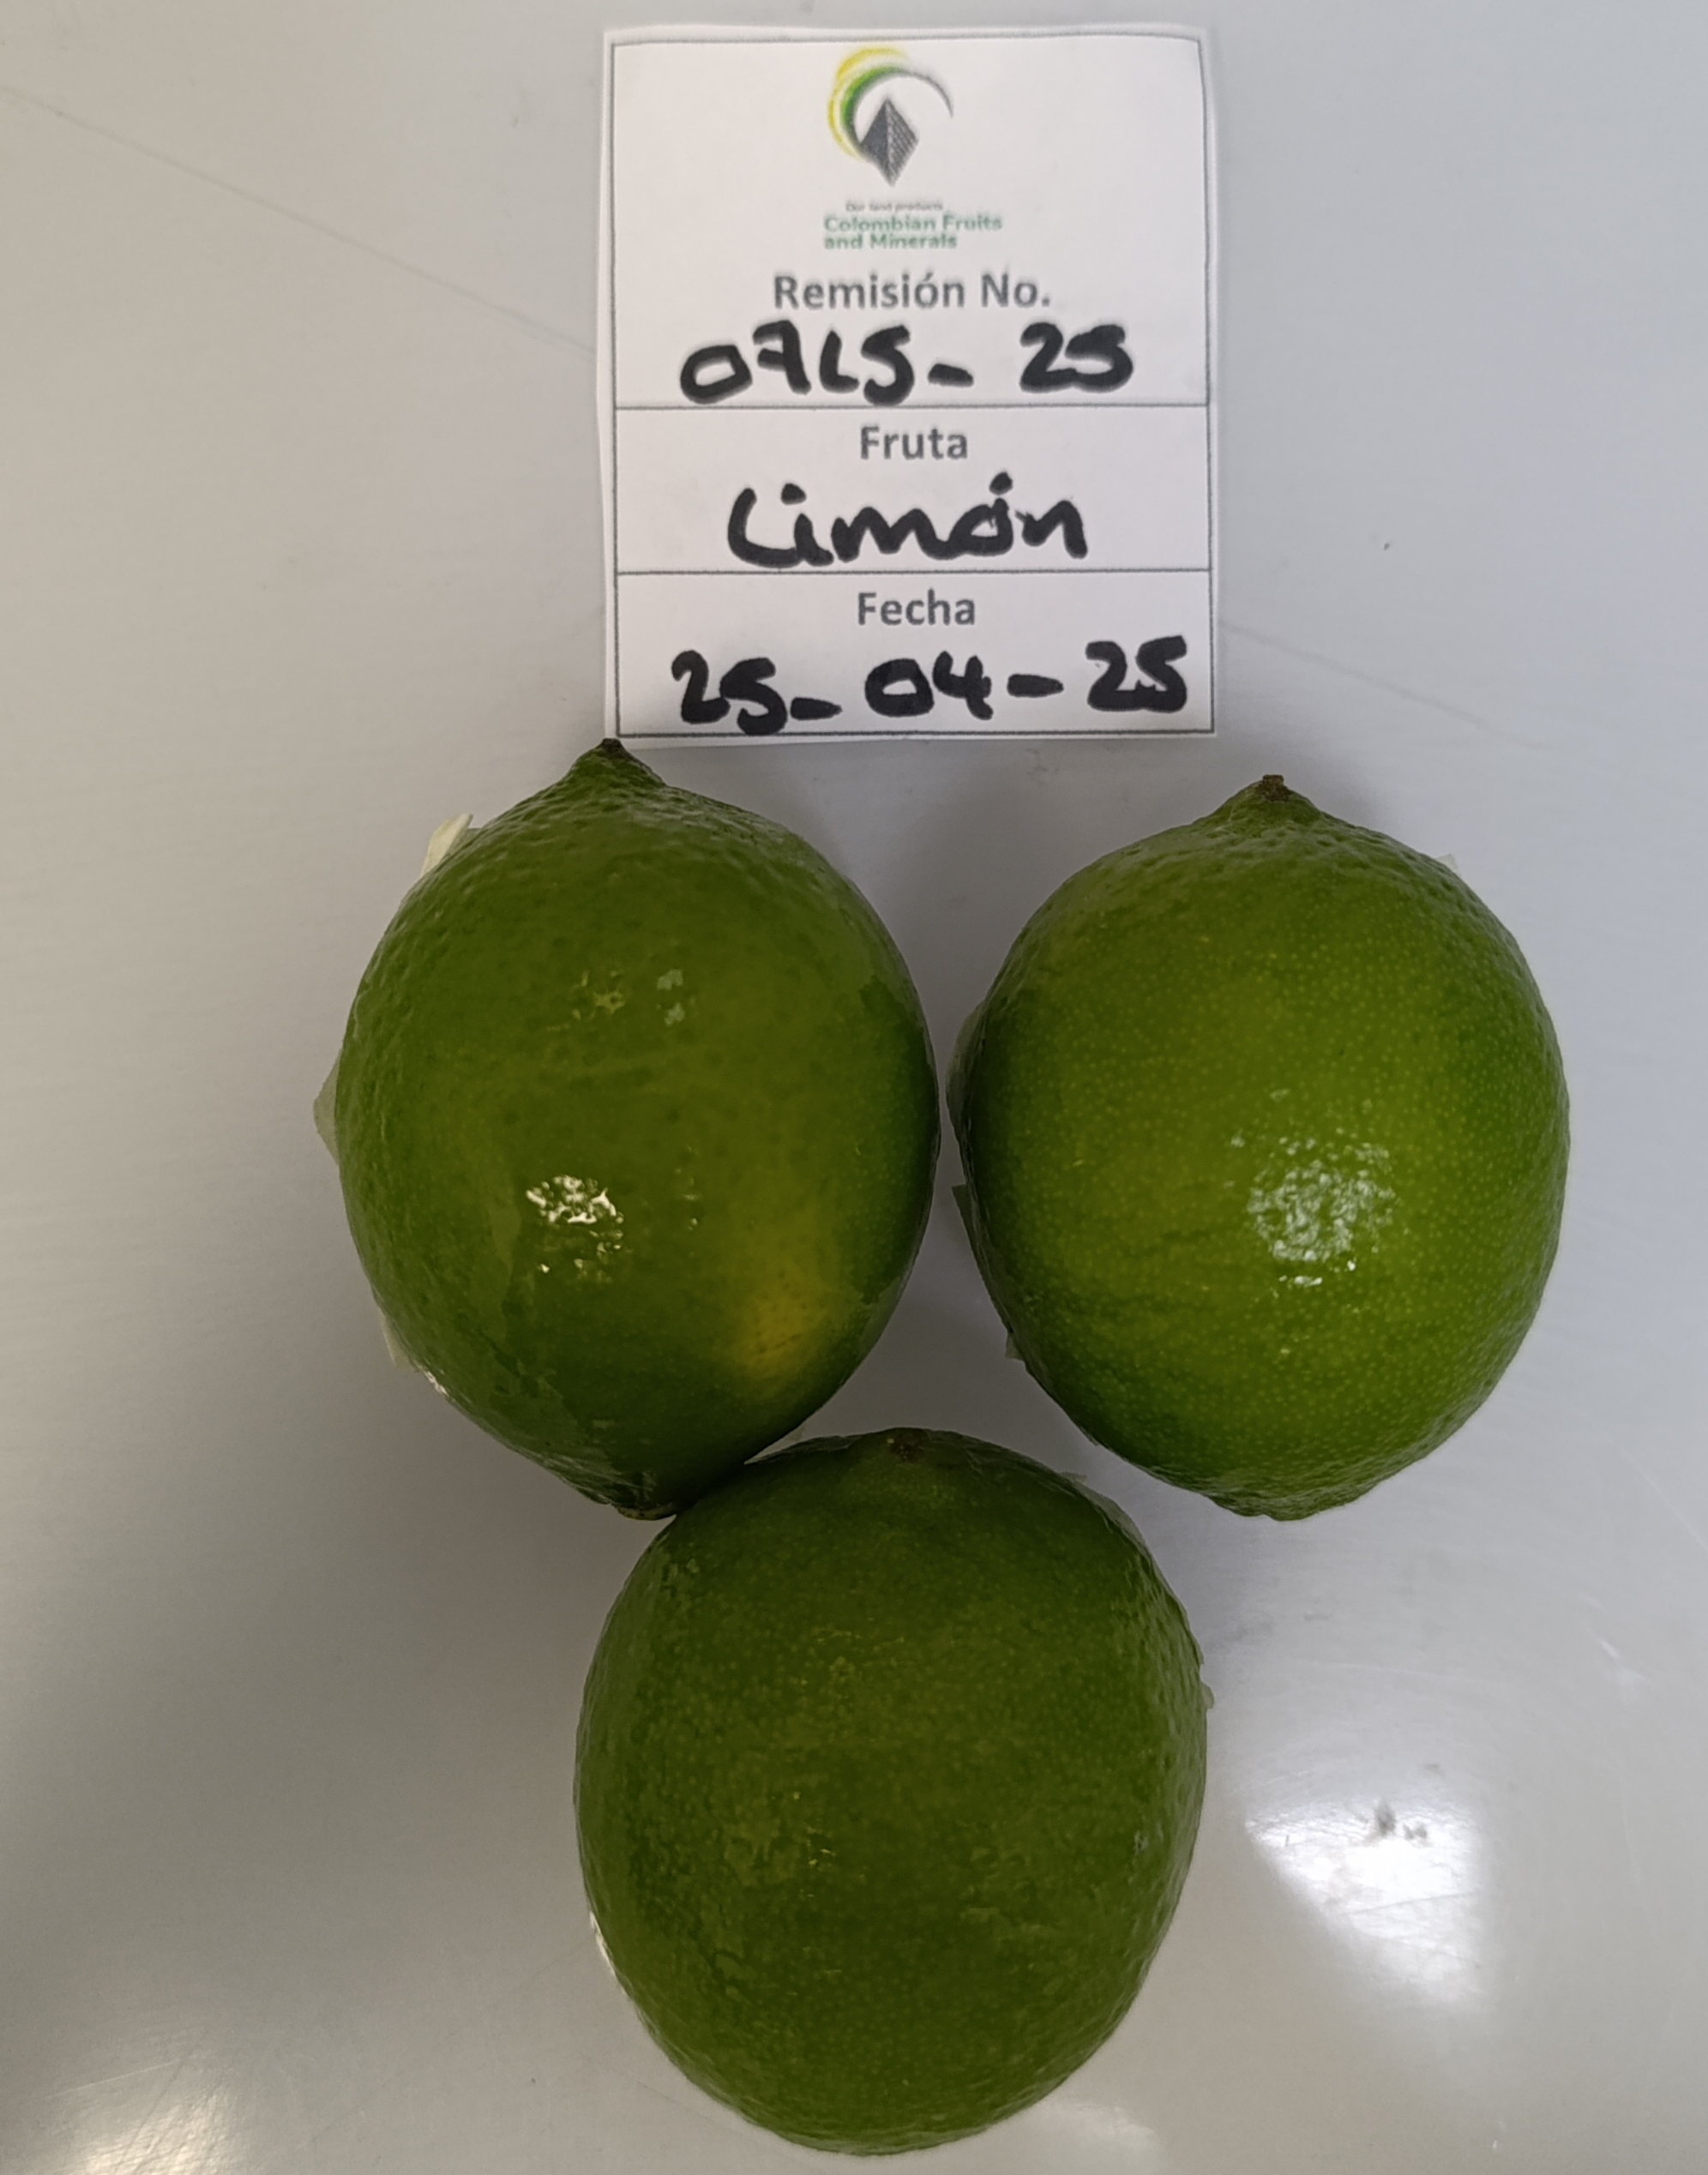 Our land products
Colombian Fruits
and Minerals
Remisión No.
07L5-25
Fruta
Limón
Fecha
25-04-25